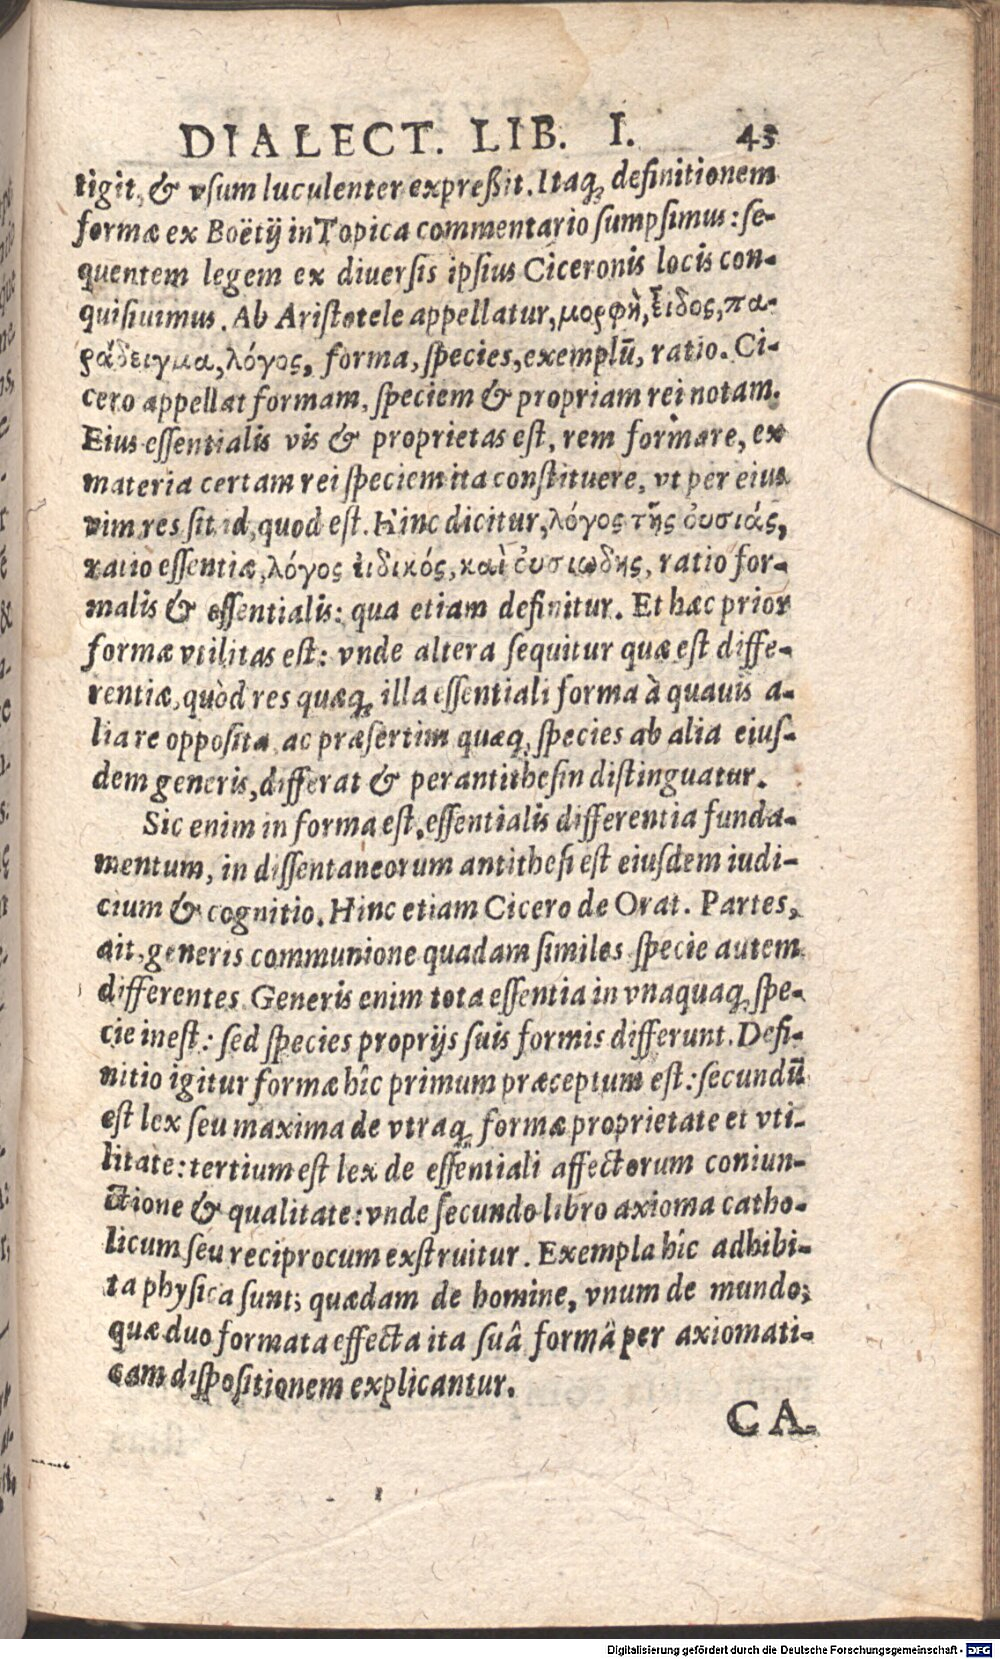 DIALECT. LIB. I. 43
tigit, & vsum luculenter expreßit. Itaq; definitionem
formæ ex Boëtij in Topica commentario sumpsimus: se-
quentem legem ex diuersis ipsius Ciceronis locis con-
quisiuimus. Ab Aristotele appellatur, μορφὴ, εἶδος, πα-
ράδειγμα, λόγος, forma, species, exemplū, ratio. Ci-
cero appellat formam, speciem & propriam rei notam.
Eius essentialis vis & proprietas est, rem formare, ex
materia certam rei speciem ita constituere, vt per eius
vim res sit id, quod est. Hinc dicitur, λόγος τῆς ὀυσιάς,
ratio essentiæ, λόγος εἰδικός, καὶ ὀυσιωδης, ratio for-
malis & essentialis: qua etiam definitur. Et hæc prior
formæ vtilitas est: vnde altera sequitur quæ est diffe-
rentiæ, quòd res quæq; illa essentiali forma à quauis a-
lia re opposita ac præsertim quæq; species ab alia eius-
dem generis, differat & per antithesin distinguatur.
Sic enim in forma est, essentialis differentia funda-
mentum, in dissentaneorum antithesi est eiusdem iudi-
cium & cognitio. Hinc etiam Cicero de Orat. Partes,
ait, generis communione quadam similes specie autem
differentes Generis enim tota essentia in vnaquaq; spe-
cie inest: sed species proprijs suis formis differunt. Defi-
nitio igitur formæ hîc primum præceptum est: secundū
est lex seu maxima de vtraq; formæ proprietate et vti-
litate: tertium est lex de essentiali affectorum coniun-
ctione & qualitate: vnde secundo libro axioma catho-
licum seu reciprocum exstruitur. Exempla hîc adhibi-
ta physica sunt; quædam de homine, vnum de mundo;
quæ duo formata effecta ita suâ formâ per axiomati-
cam dispositionem explicantur.
CA-
Digitalisierung gefördert durch die Deutsche Forschungsgemeinschaft - DFG